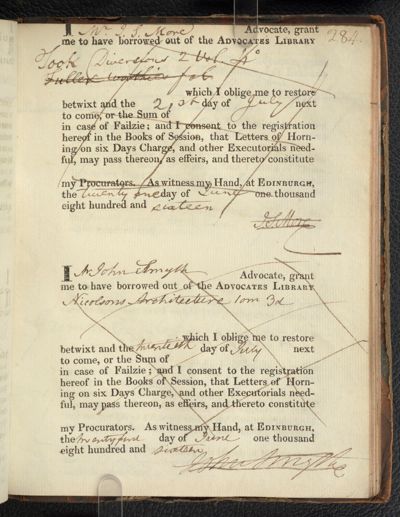 284
I Mr J. S. More Advocate, grant
me to have borrowed out of the ADVOCATES LIBRARY
Took Diversions 2 Vol. 4o
Fuller Worthies fol
which I oblige me to restore
betwixt and the 21st day of July next
to come, or the Sum of
in case of Failzie; and I consent to the registration
hereof in the Books of Session, that Letters of Horn-
ing on six Days Charge, and other Executorials need-
ful, may pass thereon, as effeirs, and thereto constitute
my Procurators. As witness my Hand, at EDINBURGH,
the twenty one day of June one thousand
eight hundred and sixteen
J. S. More
I Mr John Smyth Advocate, grant
me to have borrowed out of the ADVOCATES LIBRARY
Nicolsons Architecture Tom 3d
which I oblige me to restore
betwixt and the twentieth day of July next
to come, or the Sum of
in case of Failzie; and I consent to the registration
hereof in the Books of Session, that Letters of Horn-
ing on six Days Charge, and other Executorials need-
ful, may pass thereon, as effeirs, and thereto constitute
my Procurators. As witness my Hand, at EDINBURGH,
the twenty first day of June one thousand
eight hundred and sixteen
John Smythe